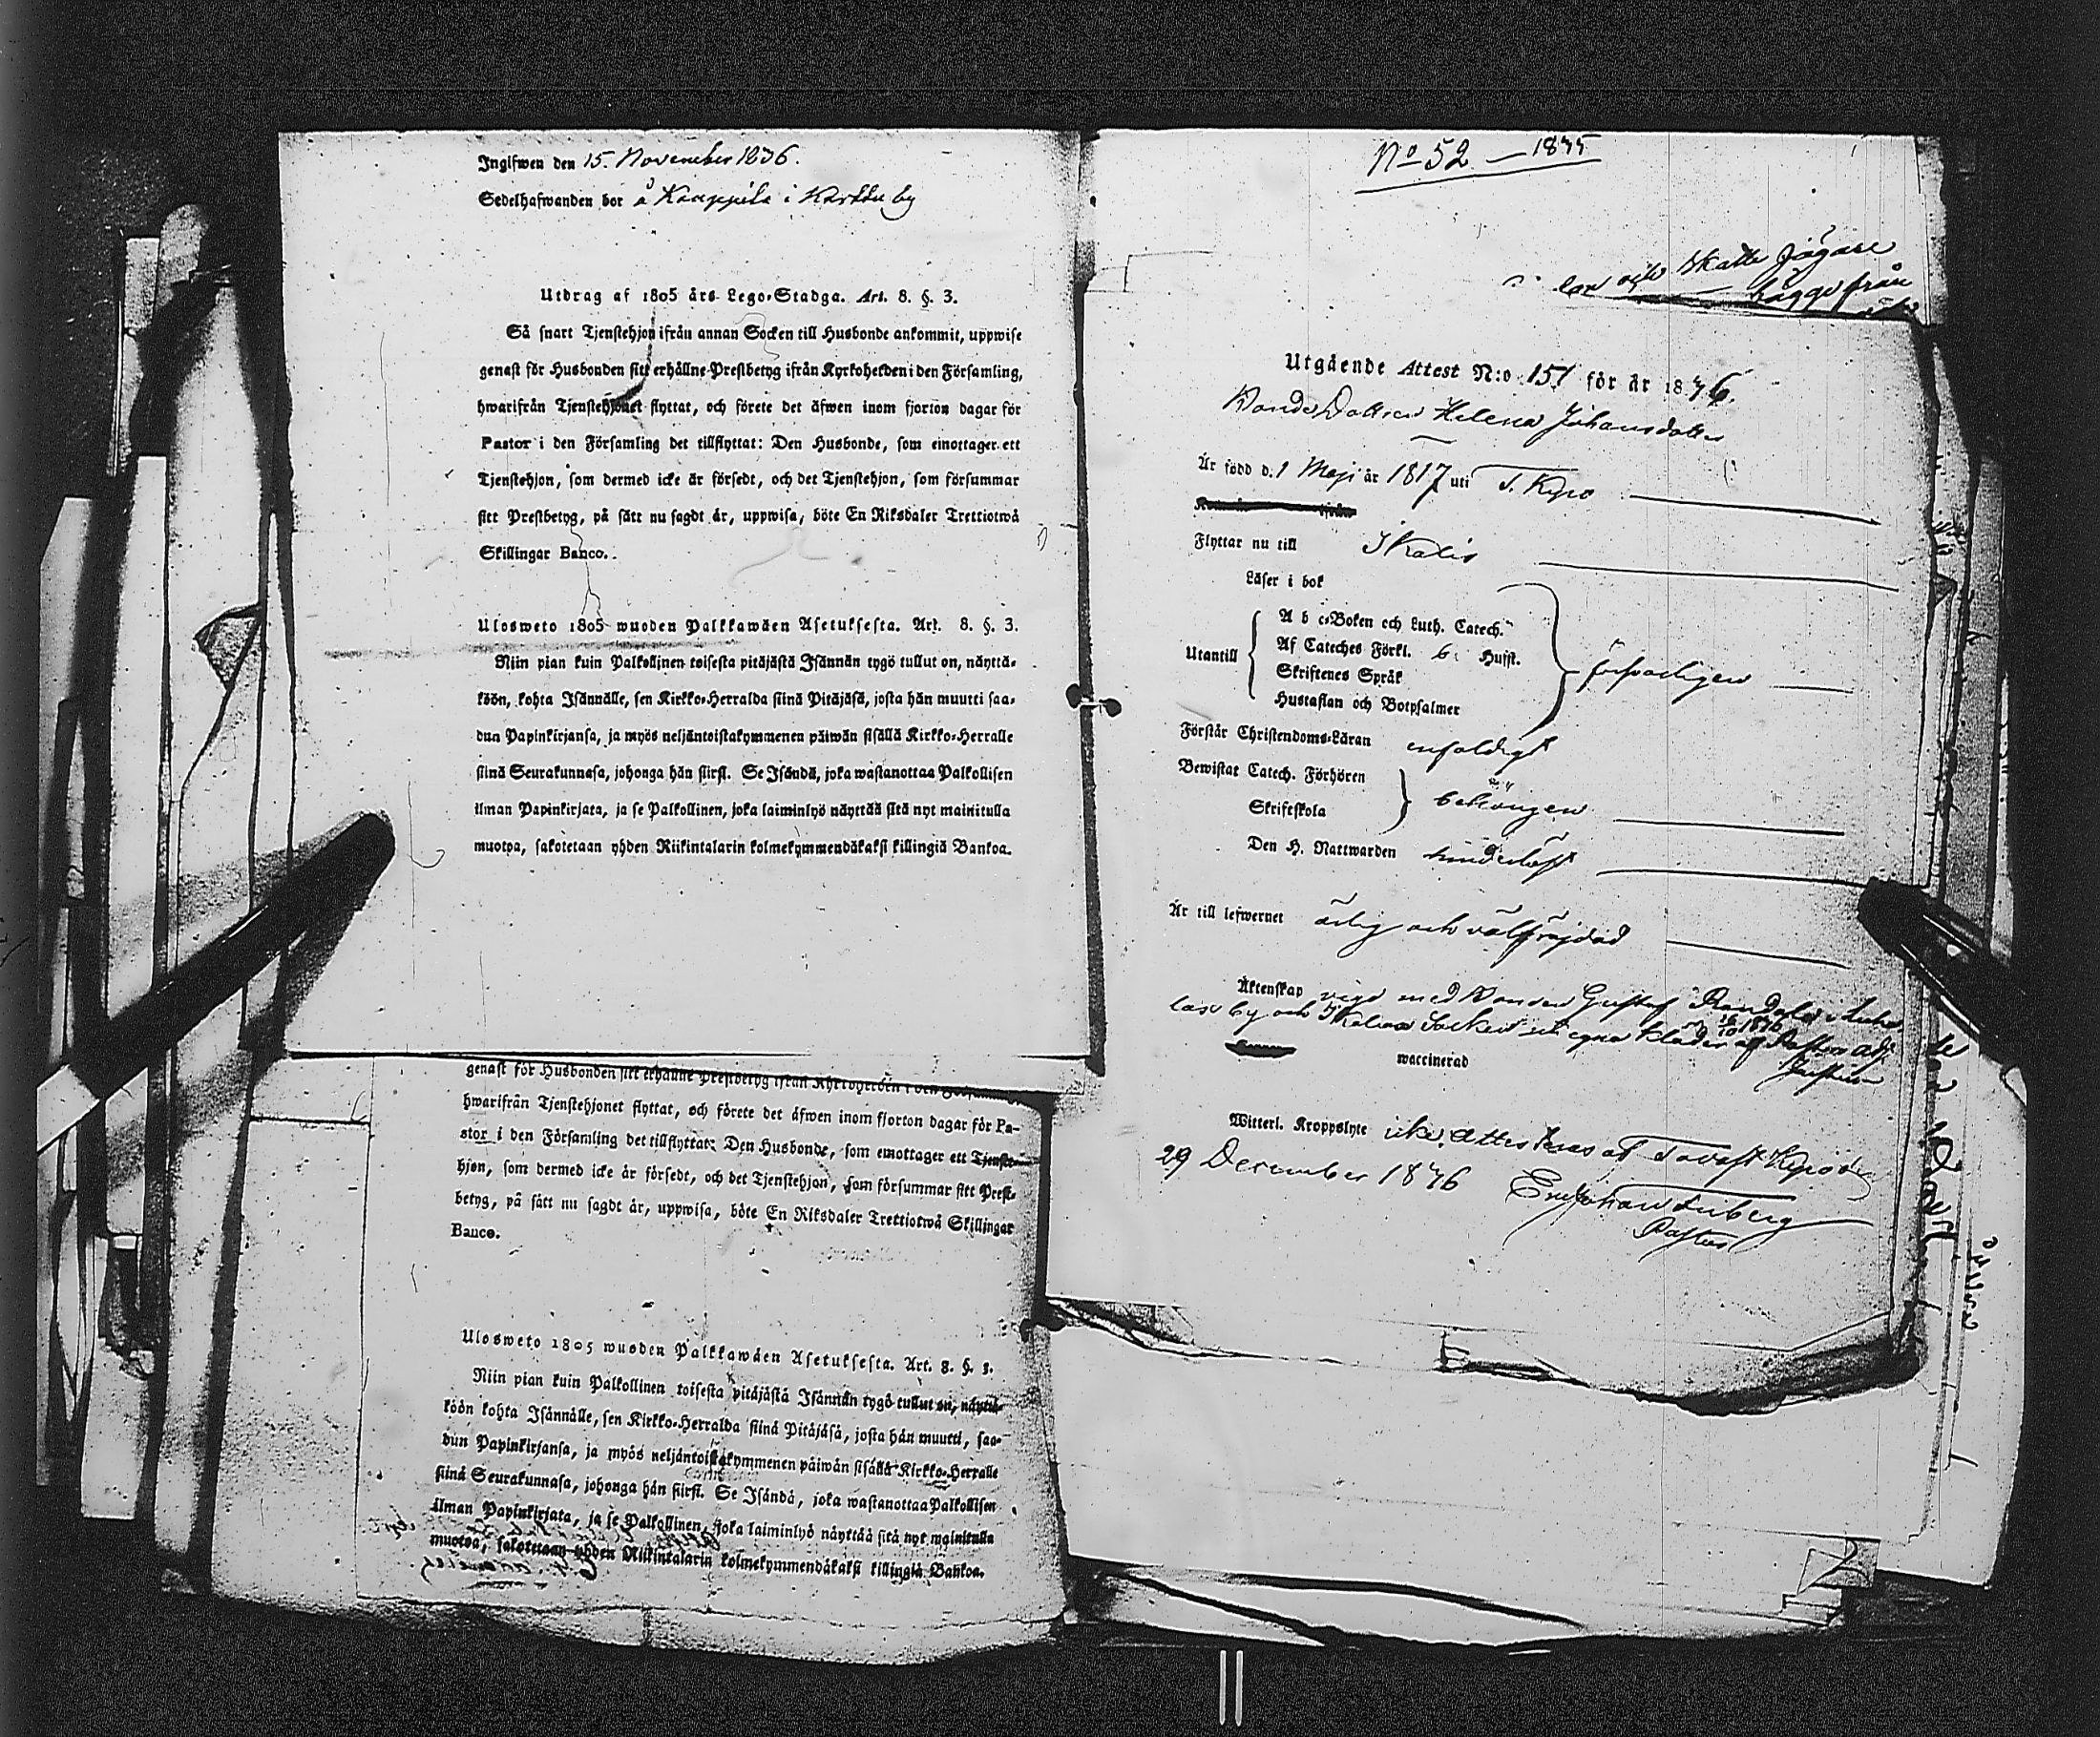 Inglfwen den 15. November 1836.
Sedelhafwanden bor å Kauppila i Karttu by
Utdrag af 1805 års Lego-Stadga. Art. 8. §. 3.
Så snart Tjenstehjon ifrån annan Socken till Husbonde ankommit, uppwise
genast för Husbonden sitt erhållne Prestbetyg ifrån Kyrkoherden i den Församling,
hwarifrån Tjenstehjonet flyttat, och förete det äfwen inom fjorton dagar för
Pastor i den Församling det tillflyttat: Den Husbonde, som emottager ett
Tjenstehjon, som dermed icke är försedt, och det Tjenstehjon, som försummar
sitt Prestbetyg, på sätt nu sagdt är, uppwisa, böte En Riksdaler Trettiotwå
Skillingar Banco.
Ulosweto 1805 wuoden Palkkawäen Asetuksesta. Art. 8. §. 3.
Niin pian kuin Palkollinen toisesta pitäjästä Isännän tygö tullut on, näyttä-
köön, kohta Isännälle, sen Kirkko-Herralda siinä Pitäjäsä, josta hän muutti saa-
dun Papinkirjansa, ja myös neljäntoistakymmenen päiwän sisällä Kirkko-Herralle
siinä Seurakunnasa, johonga hän siirsi. Se Isändä, joka wastanottaa Palkollisen
ilman Papinkirjata, ja se Palkollinen, joka laiminlyö näyttää sitä nyt mainitulla
muotoa, sakotetaan yhden Riikintalarin kolmekymmendäkaksi killingiä Bankoa.
genast för Husbonden sitt erhållne Prestbetyg ifrån Kyrkoherden i den
hwarifrån Tjenstehjonet flyttat, och förete det äfwen inom fjorton dagar för Pa-
stor i den Församling det tillflyttat: Den Husbonde, som emottager ett Tjenste-
hjon, som dermed icke är försedt, och det Tjenstehjon, som försummar sitt Prest-
betyg, på sätt nu sagdt är, uppwisa, böte En Riksdaler Trettiotwå Skillingar
Banco.
Ulosweto 1805 wuoden Palkkawäen Asetuksesta. Art. 8. §. 3.
Niin pian kuin Palkollinen toisesta pitäjästä Isännän tygö tullut on, näyttä-
köön kohta Isännälle, sen Kirkko-Herralda siinä Pitäjäsä, josta hän muutti, saa-
dun Papinkirjansa, ja myös neljäntoistakymmenen päiwän sisällä Kirkko-Herralle
siinä Seurakunnasa, johonga hän siirsi. Se Isändä, joka wastanottaa Palkollisen
ilman Papinkirjata, ja se Palkollinen, joka laiminlyö näyttää sitä nyt mainitulla
muotoa, sakotetaan yhden Riikintalarin kolmekymmendäkaksi killingiä Bankoa.
No 52 — 1845
Skatte Jägare
från
Utgående Attest N:o 151 för år 1846.
Bonde Dottren Helena Johansdotter
Är född d. 1 Maji år 1817 uti T. Kyro
Flyttar nu till Ikalis
Läser i bok
Utantill
A b c-Boken och Luth. Catech.
Af Cateches Förkl. 6 Hufst.
Skriftenes Språk
Hustaflan och Botpsalmer
försvarligen
Förstår Christendoms-Läran enfaldigt
Bewistat Catech. Förhören
Skriftskola
behörigen
Den H. Nattwarden hinderlöst
Är till lefwernet ärlig och välfräjdad
Äktenskap vigd med Bonden Gustaf
by och Ikalis Socken i egna kläder 1846 af Pastors Adj.
waccinerad
Witterl. Kroppslyte icke, Attesteras af Tavast Kyro den
29 December 1846
Pastor